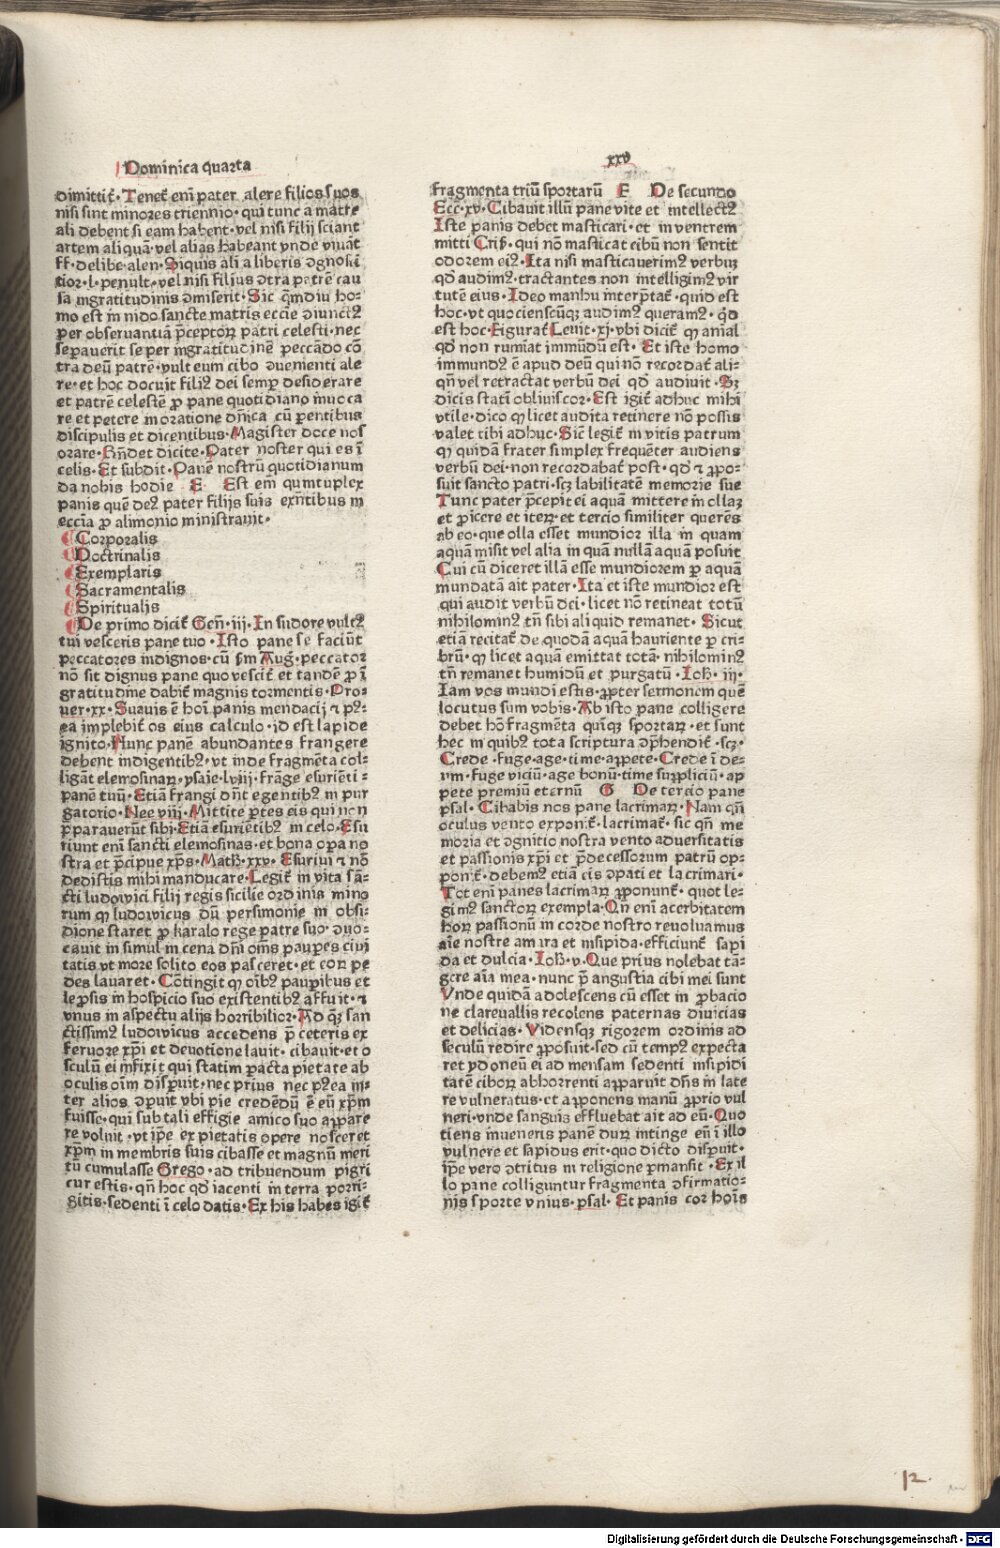 Dominica quarta
xxv
dimittit̃· Tenet̃ eni᷒ pater alere filios suos
nisi sint minores triennio· qui tunc a matre
ali debent si eam habent· vel nisi filij sciant
artem aliquã· vel alias habeant vnde viuãt
ff· de libe· alen· Siquis ali a liberis ꝯgnosci
tior· l· penult· vel nisi filius ꝯtra patrẽ cau
sa ingratitudinis ꝯmiserit· Sic q̃mdiu ho-
mo est in nido sancte matris eccĩe ꝯiunctꝰ
per obseruantiã p̃ceptoꝝ patri celesti· nec
separauerit se per ingratitudinẽ peccãdo cõ
tra deũ patrẽ· vult eum cibo ꝯuenienti ale
re· et hoc docuit filiꝰ dei semꝑ desiderare
et patrẽ celestẽ ꝓ pane quotidiano inuoca
re et petere in oratione dñica cũ petentibus
discipulis et dicentibus· Magister doce nos
orare· Rñdet dicite· Pater noster qui es ĩ
celis· Et subdit· Panẽ nostrũ quotidianum
da nobis hodie E Est em̃ quintuplex
panis quẽ deꝰ pater filijs suis exñtibus in
eccĩa ꝓ alimonio ministrauit·
¶Corporalis
¶Doctrinalis
¶Exemplaris
¶Sacramentalis
¶Spiritualis
¶De primo dicit̃ Geñ· iij· In sudore vultꝰ
tui vesceris pane tuo· Isto pane se faciũt
peccatores indignos· cũ ẜm Aug̃· peccator
nõ sit dignus pane quo vescit̃· et tandẽ ꝓ ĩ
gratitudine dabit̃ magnis tormentis· Pro-
uer· xx· Suauis ẽ hoĩ panis mendacij ⁊ pꝰ-
ea implebit̃ os eius calculo· id est lapide
ignito· Nunc panẽ abundantes frangere
debent indigentibꝰ· vt inde fragmẽta col-
ligãt elemosinaꝝ· ysaie· lviij· frãge esuriẽti-
panẽ tuũ· Etiã frangi dñt egentibꝰ in pur
gatorio· Nee viij· Mittite ꝑtes eis qui non
p̃parauerũt sibi· Etiã esuriẽtibꝰ in celo· Esu
riunt eni᷒ sancti elemosinas· et bona oꝑa no
stra et p̃cipue xp̃s· Math̃· xxv· Esuriui ⁊ nõ
dedistis mihi manducare· Legit̃ in vita sã-
cti ludowici filij regis sicilie ordinis mino
rum ꝙ ludowicus dũ personnie in obsi-
dione staret ꝓ karalo rege patre suo· ꝯuo-
cauit in simul in cena dñi oẽs paupes ciui
tatis vt more solito eos pasceret· et eoꝝ pe
des lauaret· Cõtingit ꝙ oĩbꝰ pauꝑibus et
leprosis in hospicio suo existentibꝰ affuit· ⁊
vnus in aspectu alijs horribilior· Ad q̃ꝫ san
ctissimꝰ ludowicus accedens p̃ ceteris ex
feruore xp̃i et deuotione lauit· cibauit· et o
sculũ ei infixit qui statim ꝑacta pietate ab
oculis oĩm disparuit· nec prius nec pꝰea in-
ter alios ꝯparuit vbi pie credẽdũ ẽ eũ xp̃m
fuisse· qui sub tali effigie amico suo apparere
re voluit· vt ip̃e ex pietatis opere nosceret
xp̃m in membris suis cibasse et magnũ meri
tũ cumulasse Grego· ad tribuendum pigri
cur estis· qñ hoc qd̃ iacenti in terra porri-
gitis· sedenti ĩ celo datis· Ex his habes igit̃
fragmenta triũ sportarũ F De secundo
Ecc· xv· Cibauit illũ pane vite et intellectꝰ
Iste panis debet masticari· et in ventrem
mitti Cris̃· qui nõ masticat cibũ non sentit
odorem eiꝰ· Ita nisi masticauerimꝰ verbuꝫ
qd̃ audimꝰ· tractantes non intelligimꝰ vir
tutẽ eius· Ideo manhu interp̃tat̃· quid est
hoc· vt quociensciũqꝫ audimꝰ queramꝰ· q̃d
est hoc· Figurat̃ Leuit· xj· vbi dicit̃ ꝙ anĩal
qd̃ non ruminat immũdũ est· Et iste homo
immundꝰ ẽ apud deũ qui nõ recordat̃ ali-
qñ vel retractat verbũ dei qd̃ audiuit· Sꝫ
dicis statĩ obliuiscor· Est igit̃ adhuc mihi
vtile· dico ꝙ licet audita retinere nõ possis
valet tibi adhuc· Sic̃ legit̃ in vitis patrum
ꝙ quidã frater simplex frequẽter audiens
verbũ dei· non recordabat̃ post· qd̃ ⁊ ꝓpo-
suit sancto patri· scꝫ labilitatẽ memorie sue
Tunc pater p̃cepit ei aquã mittere in ollaꝫ
et ꝓicere et iteꝝ· et tercio similiter querẽs
ab eo· que olla esset mundior illa in quam
aquã misit vel alia in quã nullã aquã posuit
Cui cũ diceret illã esse mundiorem ꝑ aquã
mundatã ait pater· Ita et iste mundior est
qui audit verbũ dei· licet nõ retineat totũ
nihilominꝰ tñ sibi aliquid remanet· Sicut
etiã recitat̃ de quodã aquã hauriente ꝑ cri-
brũ· ꝙ licet aquã emittat totã· nihilominꝰ
tñ remanet humidũ et purgatũ· Joh̃· iij·
Iam vos mundi estis· ꝓpter sermonem quẽ
locutus sum vobis· Ab isto pane colligere
debet hõ fragmẽta quĩqꝫ sportaꝝ· et sunt
hec in quibꝰ tota scriptura ꝯp̃hendit̃· scꝫ·
Crede· fuge· age· time· appete· Crede ĩ de-
um· fuge viciũ· age bonũ· time suppliciũ· ap
pete premiũ eternũ G De tercio pane
psal· Cibabis nos pane lacrimaꝝ· Nam qñ
oculus vento exponit̃· lacrimat̃· sic qñ me
moria et ꝯgnitio nostra vento aduersitatis
et passionis xp̃i et p̃decessorum patrũ op-
ponit̃· debemꝰ etiã cis ꝯpati et lacrimari·
Tot eni᷒ panes lacrimaꝝ ꝓponunt̃· quot le-
gimꝰ sanctoꝝ exempla· Qñ eni᷒ acerbitatem
hoꝝ passionũ in corde nostro reuoluamus
aĩe nostre amara et insipida· efficiunt̃ sapi
da et dulcia· Iob̃· v· Que prius nolebat tã-
gere aĩa mea· nunc p̃ angustia cibi mei sunt
Vnde quidã adolescens cũ esset in ꝓbacio
ne clareuallis recolens paternas diuicias
et delicias· Vidensqꝫ rigorem ordinis ad
seculũ redire ꝓposuit· sed cũ tempꝰ expecta
ret ydoneũ ei ad mensam sedenti insipidi
tatẽ ciboꝝ abhorrenti apparuit dñs in late
re vulneratus· et apponens manũ ꝓprio vul
neri· vnde sanguis effluebat ait ad eũ· Quo
tiens inueneris panẽ duꝝ intinge eũ ĩ illo
vulnere et sapidus erit· quo dicto disparuit·
ip̃e vero ꝯtritus in religione ꝑmansit· Ex il
lo pane colliguntur fragmenta ꝯfirmatio-
nis sporte vnius· psal· Et panis cor hoĩs
12·
Digitalisierung gefördert durch die Deutsche Forschungsgemeinschaft - DFG